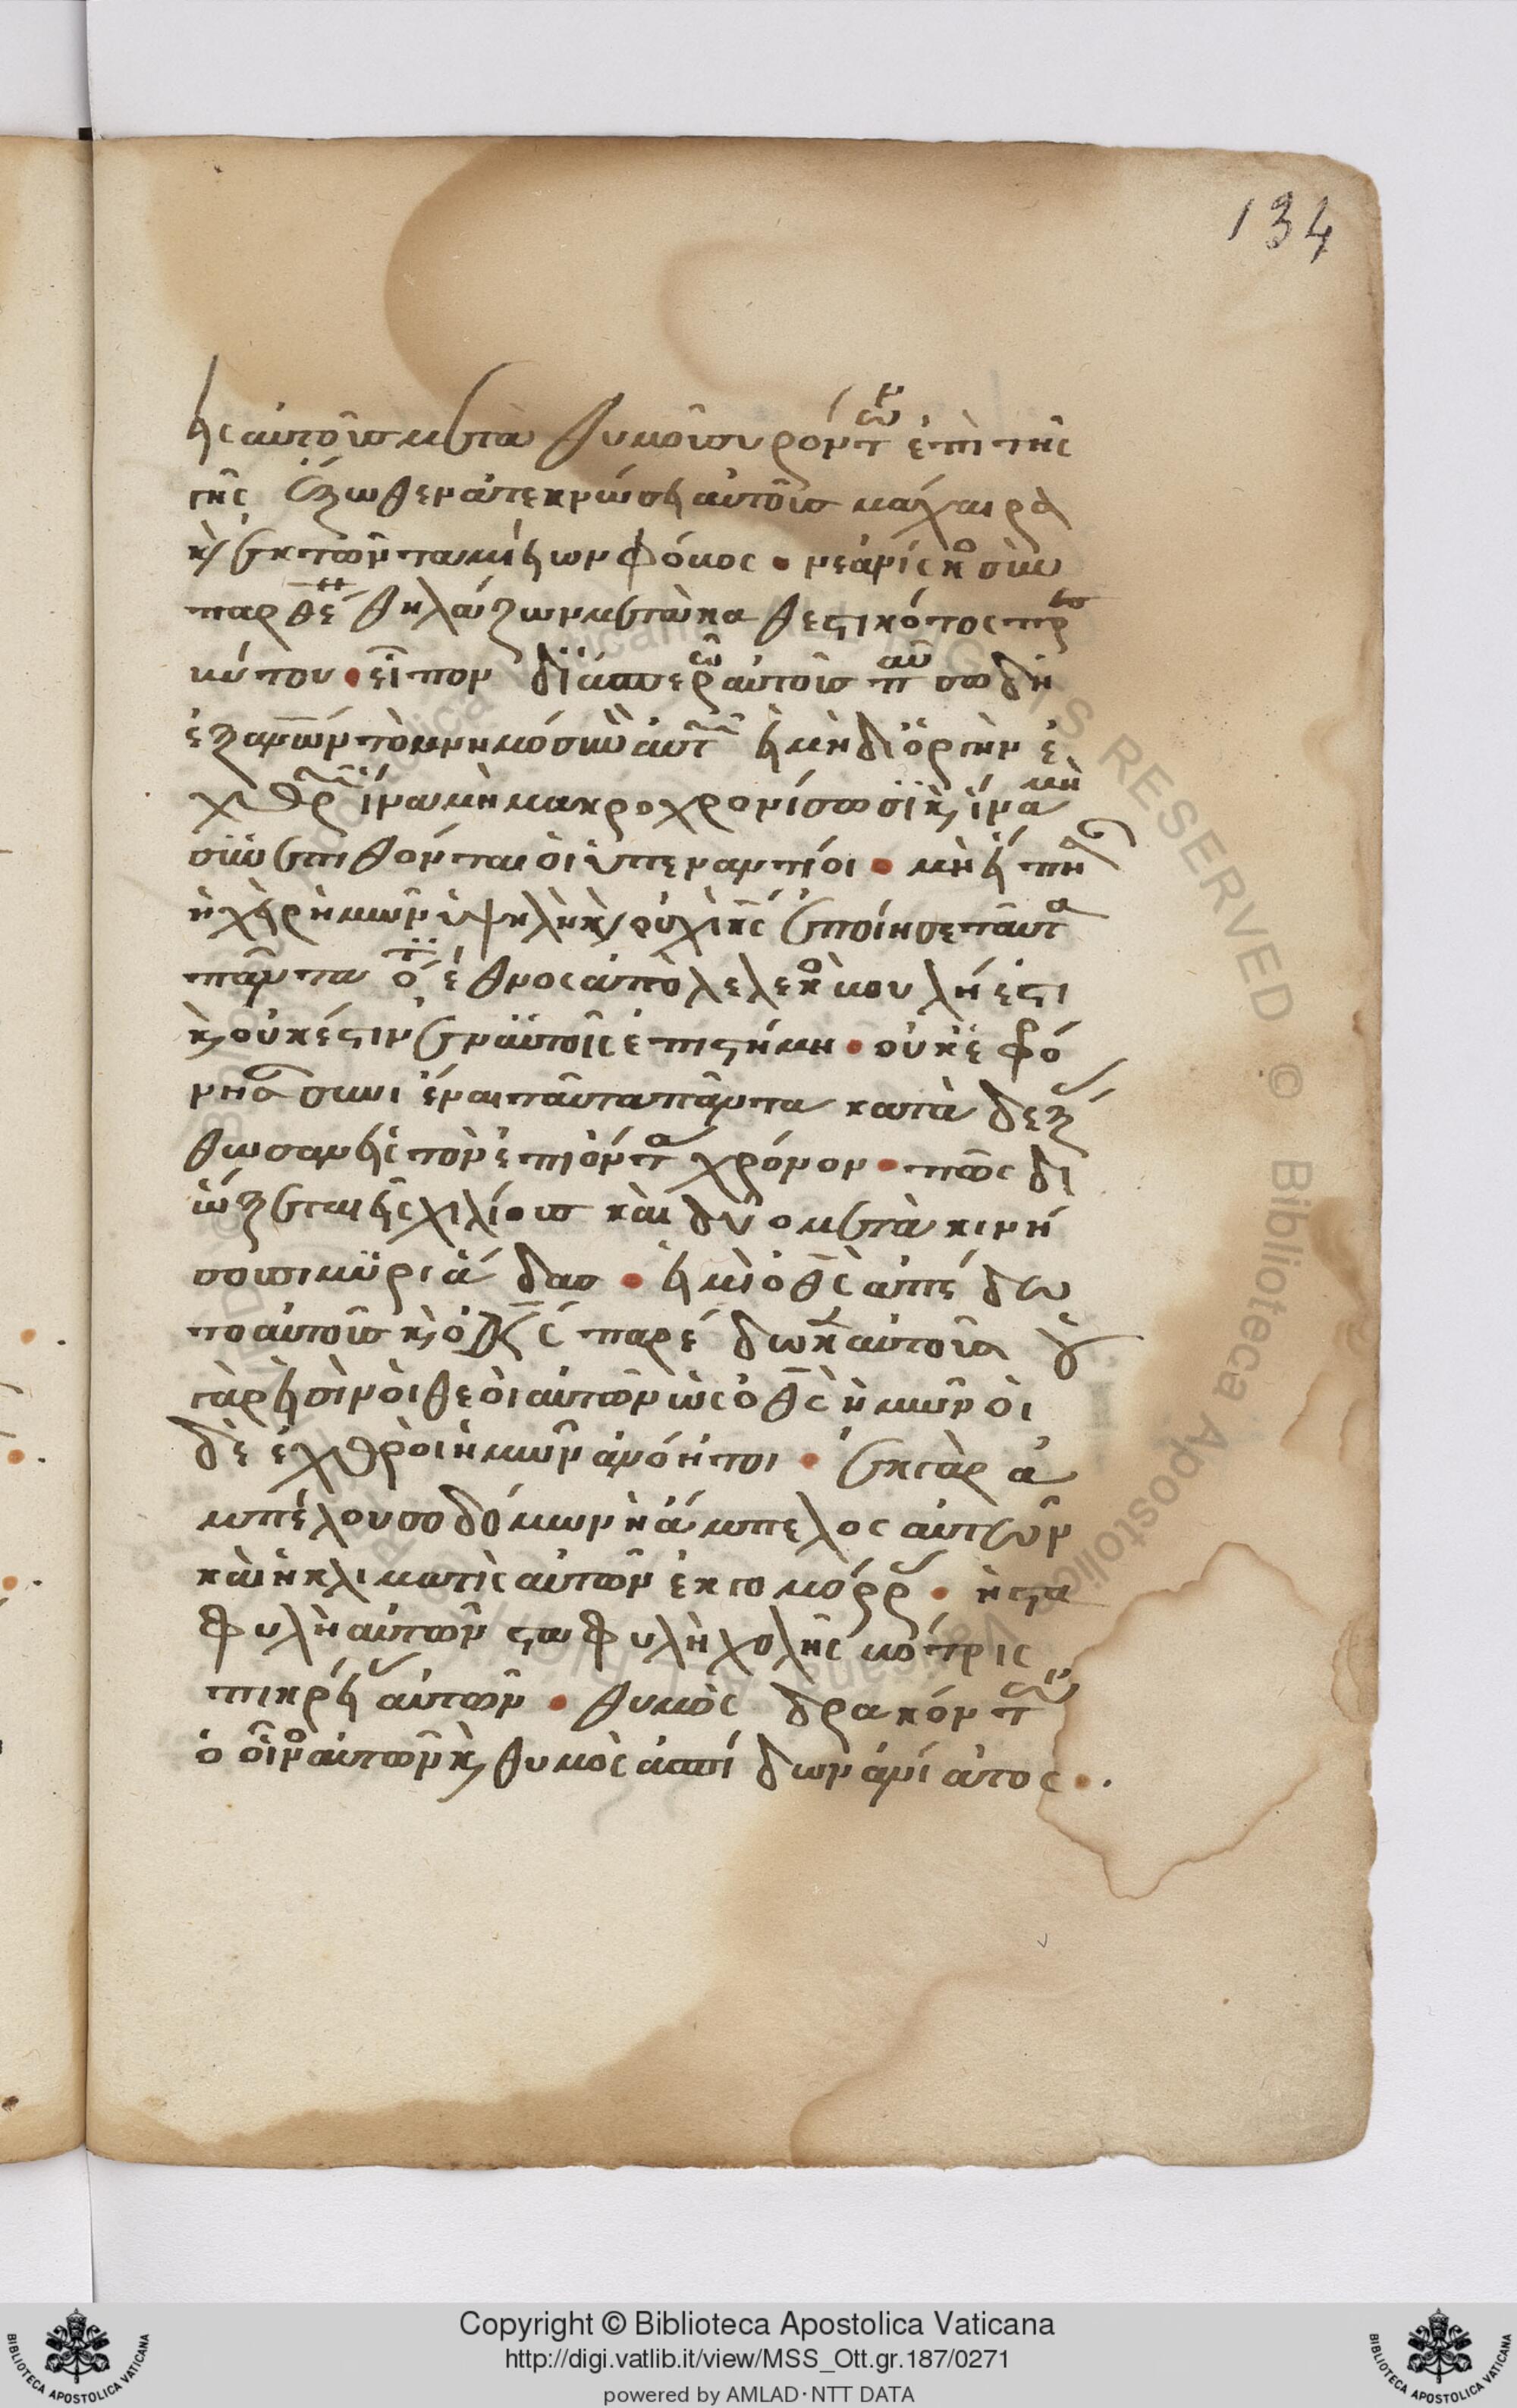 134
εἰς αὐτοῖς μετὰ θυμοῦ συρόντων ἐπὶ τῆς
γῆς ἔξωθεν ἀτεκνώσει αὐτοῖς μάχαιρα
κ ἐκ τῶν ταμείων φόβος · νεανίσκος σὺν
παρθένῳ θηλάζων μετὰ καθεστηκότος πρεσ
βύτου · εἶπον διασπερῶ αὐτοῖς παύσω δὴ
ἐξ ἀνῶν τὸ μνημόσυνον αὐτῶν εἰ μὴ δι ὀργὴν ἐ
χθρῶν ἵνα μὴ μακροχρονίσωσι κ ἵνα μὴ
συνεπιθῶνται οἱ ὑπεναντίοι · μὴ εἴπη
ἡ χεὶρ ἡμῶν ὑψηλὴ κ οὐχὶ κς ἐποίησε ταῦτα
πάντα ὅτι ἔθνος ἀπολελεκὸς βουλή ἐστι
κ οὐκ ἔστιν ἐν αὐτοῖς ἐπιστήμη · οὐκ ἐφρό
νησαν συνιέναι ταῦτα πάντα καταδεξά
θωσαν εἰς τὸν ἐπιόντα χρόνον · πῶς δι
ώξεται εἷς χιλίους καὶ δύο μετακινή
σουσι μυριάδας · εἰ μὴ ὁ θς ἀπέδω
το αὐτοὺς κ ὁ κς παρέδωκεν αὐτούς οὐ
γὰρ εἰσὶν οἱ θεοὶ αὐτῶν ὡς ὁ θς ἡμῶν οἱ
δὲ ἐχθροὶ ἡμῶν ἀνόητοι · ἐκ γὰρ ἀ
μπέλου σοδόμων ἡ ἄμπελος αὐτῶν
καὶ ἡ κληματὶς αὐτῶν ἐκ γομόρρας · ἡ στα
φυλὴ αὐτῶν σταφυλὴ χολῆς βότρις
πικρίας αὐτῶν · θυμὸς δρακόντων
ὁ οἶνος αὐτῶν κ θυμὸς ἀσπίδων ἀνίατος ·
BIBLIOTECA APOSTOLICA VATICANA
Copyright © Biblioteca Apostolica Vaticana
http://digi.vatlib.it/view/MSS_Ott.gr.187/0271
powered by AMLAD·NTT DATA
BIBLIOTECA APOSTOLICA VATICANA